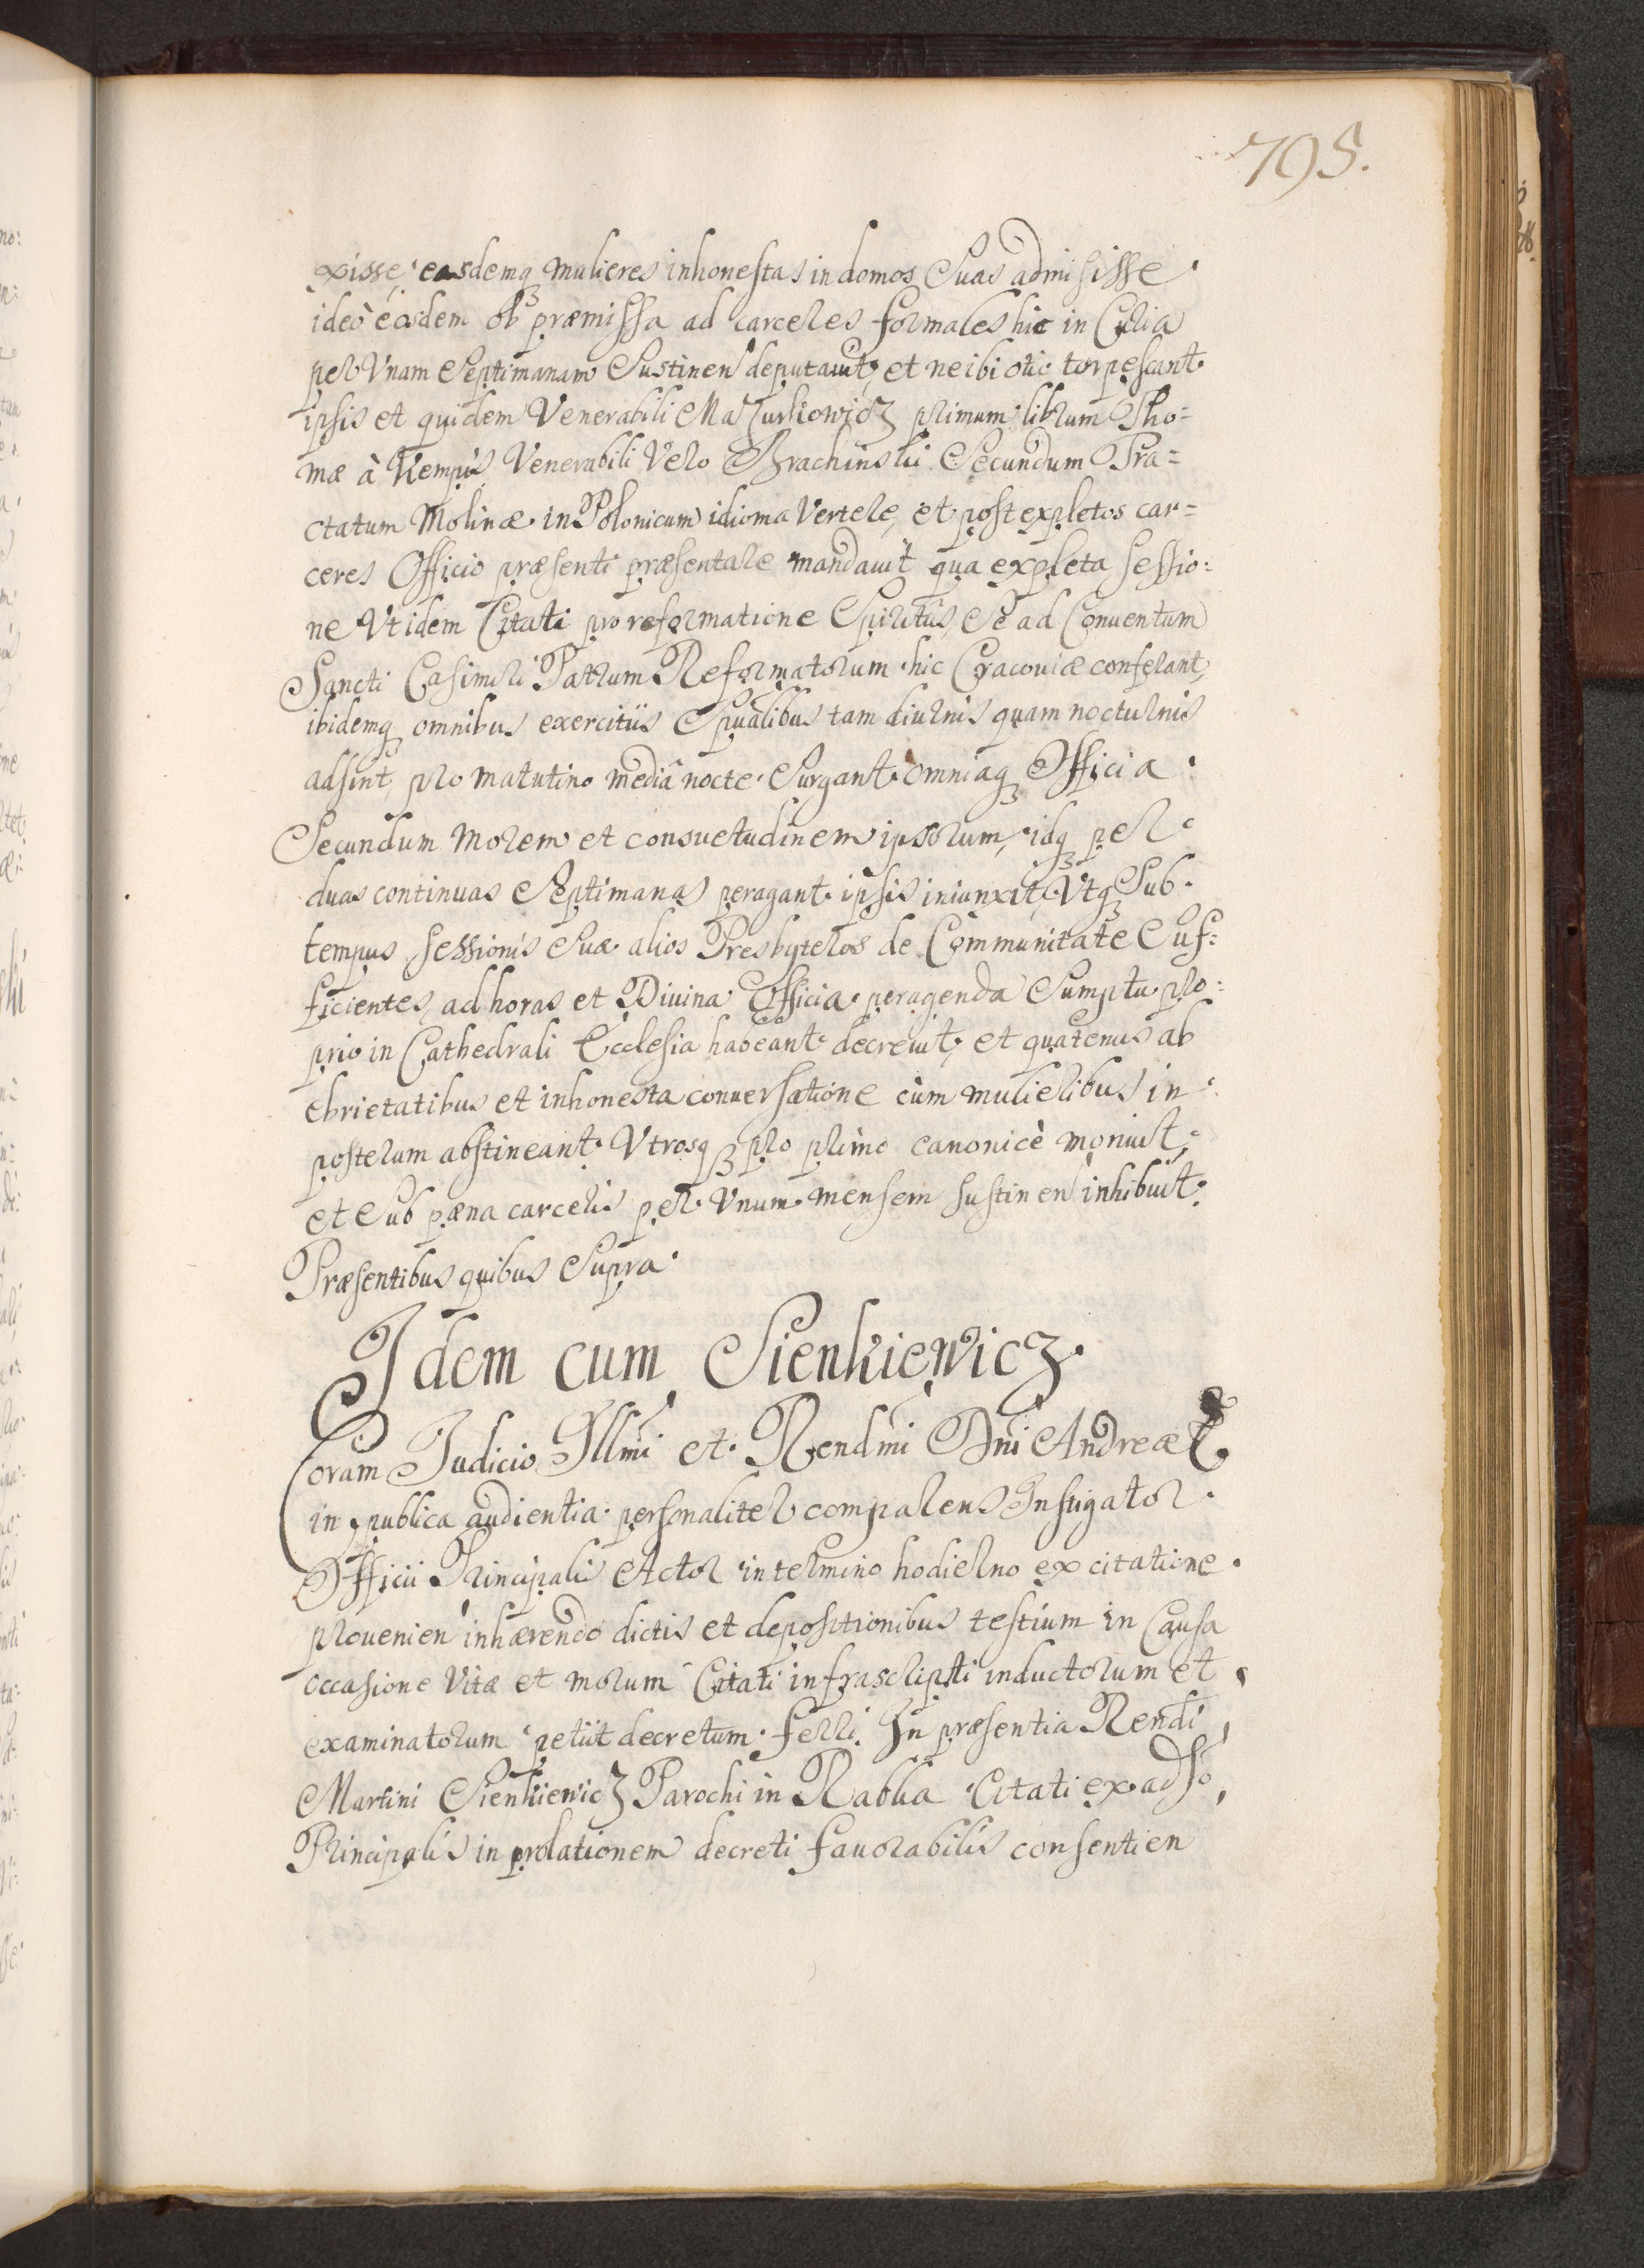 795.
xisse, easdemq₃ mulieres inhonestas in domos Suas admisisse
ideò eósdem ob præmissa ad carceres formales hic in Curia
per Vnam Septimanam Sustinen deputauit, et ne ibi otio torpescant
ipsis et quidem Venerabili Mazurkiowicz primum librum Tho=
mæ à Kempis Venerabili Vero Brachinski Secundum Tra=
ctatum Molinæ in Polonicum idioma Vertere, et post expletos car=
ceres Officio præsenti præsentare mandauit qua expleta sessio=
ne Vt idem Citati pro reformatione Spiritus, Se ad Conuentum
Sancti Casimiri Patrum Reformatorum hic Cracouiæ conferant,
ibidemq₃ omnibus exercitiis Spualibus tam diurnis quam nocturnis
adsint, pro matutino mediâ nocte Surgant omniaq₃ Officia
Secundum Morem et consuetudinem ipsorum, idq₃ per
duas continuas Septimanas peragant ipsis iniunxit, Vtq₃ Sub
tempus sessionis Suæ alios Presbyteros de Communitate Suf=
ficientes, ad horas et Diuina Officia peragenda Sumptu pro=
prio in Cathedrali Ecclesia habeant decreuit, et quatenus ab
ebrietatibus et inhonesta conuersatione cùm mulieribus in
posterum abstineant Vtrosq₃ pro primo canonicè monuit,
et Sub pæna carceris per Vnum mensem sustinen inhibuit.
Præsentibus quibus Supra.
Idem cum Sienkiewicz.
Coram Judicio Illmi et Rendmi Dni Andreæ &
in publica audientia personaliter comparens Instigator
Officii Principalis Actor in termino hodierno ex citatione
prouenien inhærendo dictis et depositionibus testium in Causa
occasione Vitæ et morum Citati infrascripti inductorum et
examinatorum petiit decretum ferri. In præsentia Rendi
Martini Sienkiewicz Parochi in Rabka Citati ex adso,
Principalis in prolationem decreti fauorabilis consentien